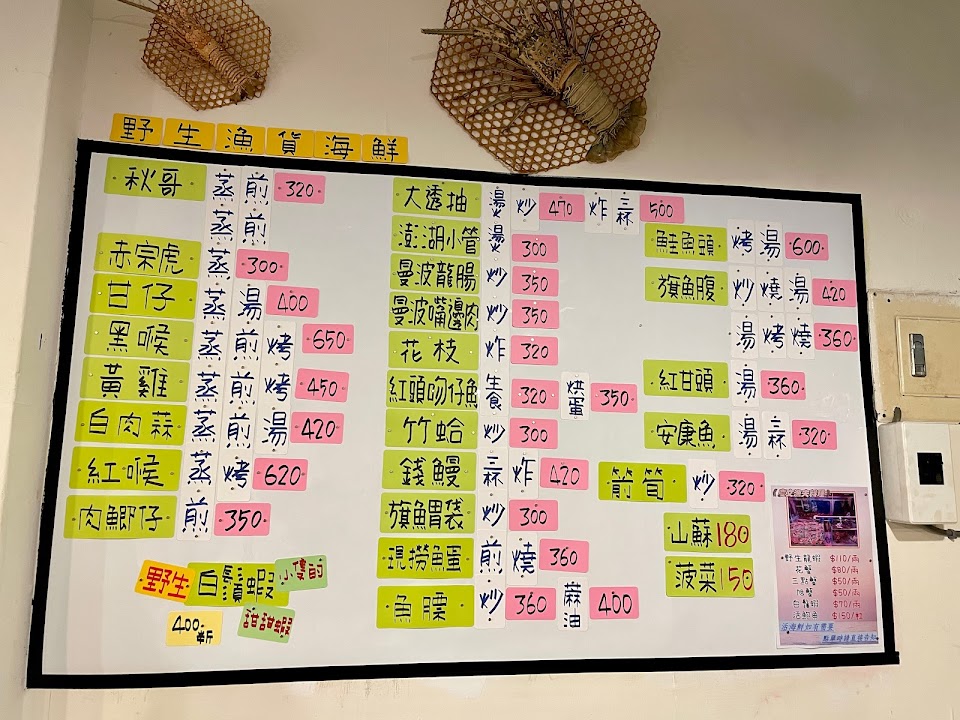 野生漁貨海鮮
秋哥 蒸 煎 320
蒸 煎
赤宗虎 蒸 300
甘仔 蒸 湯 400
黑喉 蒸 煎 烤 650
黃雞 蒸 煎 烤 450
白肉蒜 蒸 煎 湯 420
紅喉 蒸 烤 620
肉鯽仔 煎 350
野生 白鬚蝦
甜甜蝦
400 斤
大透抽 湯 炒 470 炸 三杯 500
澎湖小管 湯 300
曼波龍腸 炒 350
曼波嘴邊肉 炒 350
花枝 炸 320
紅頭吻仔魚 生食 320 烘蛋 350
竹蛤 炒 300
錢鰻 三杯 炸 420
旗魚胃袋 炒 300
現撈魚蛋 煎 燒 360
魚膘 炒 360 蔴油 400
鮭魚頭 烤 湯 600
旗魚腹 炒 燒 湯 420
湯 烤 燒 360
紅甘頭 湯 360
安康魚 湯 三杯 320
箭筍 炒 320
山蘇 180
菠菜 150
野生龍蝦 $110/兩
花蟹 $80/兩
三點蟹 $50/兩
旭蟹 $50/兩
白鬚蝦 $70/兩
活鮑魚 $150/粒
活海鮮如有需要
點單時請直接告知